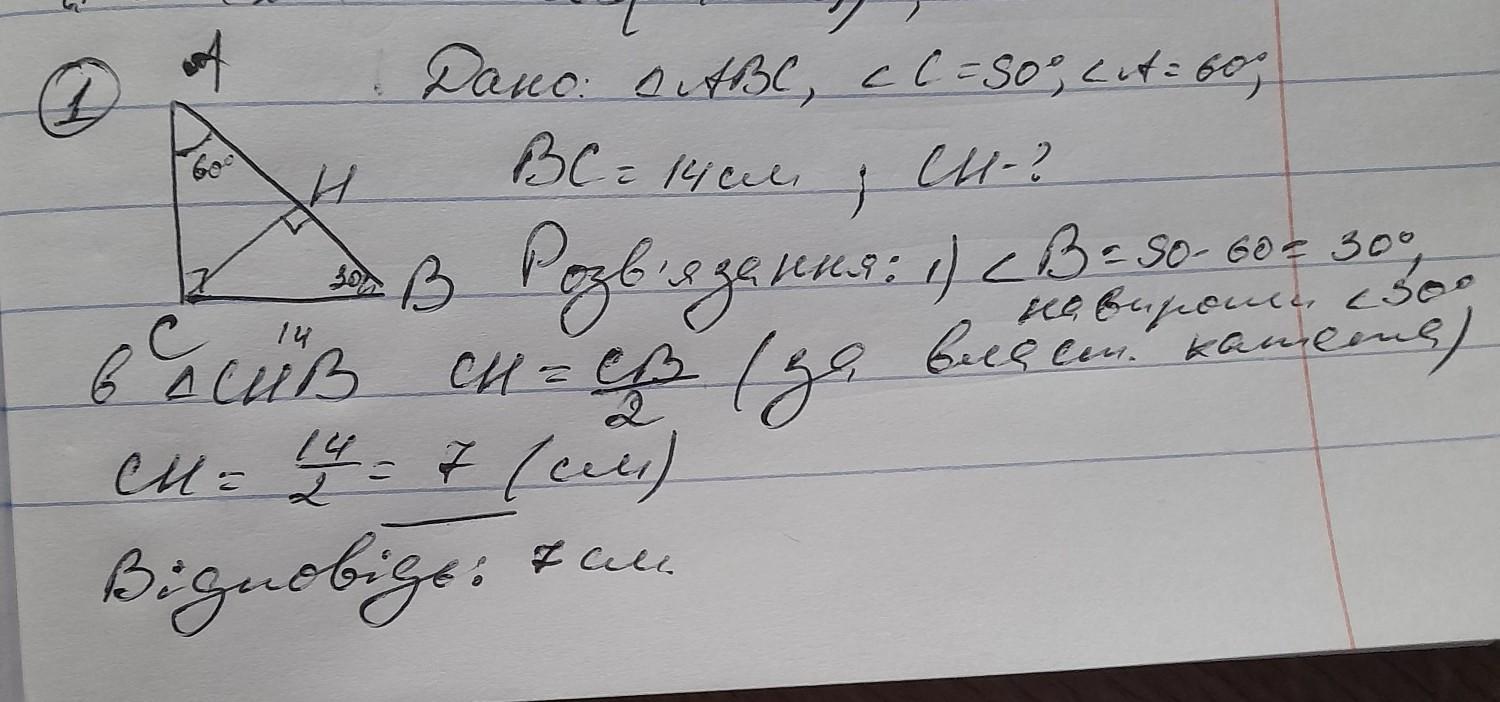 1
A
Дано: △ABC, ∠C=90°, ∠A=60°,
60°
H
BC = 14 см ; CH-?
30°
B
Розв'язання: 1) ∠B = 90-60 = 30°,
C
14
навпроти ∠30°
в △CHB CH = CB/2 (за власт. катета)
CH = 14/2 = 7 (см)
Відповідь: 7 см.